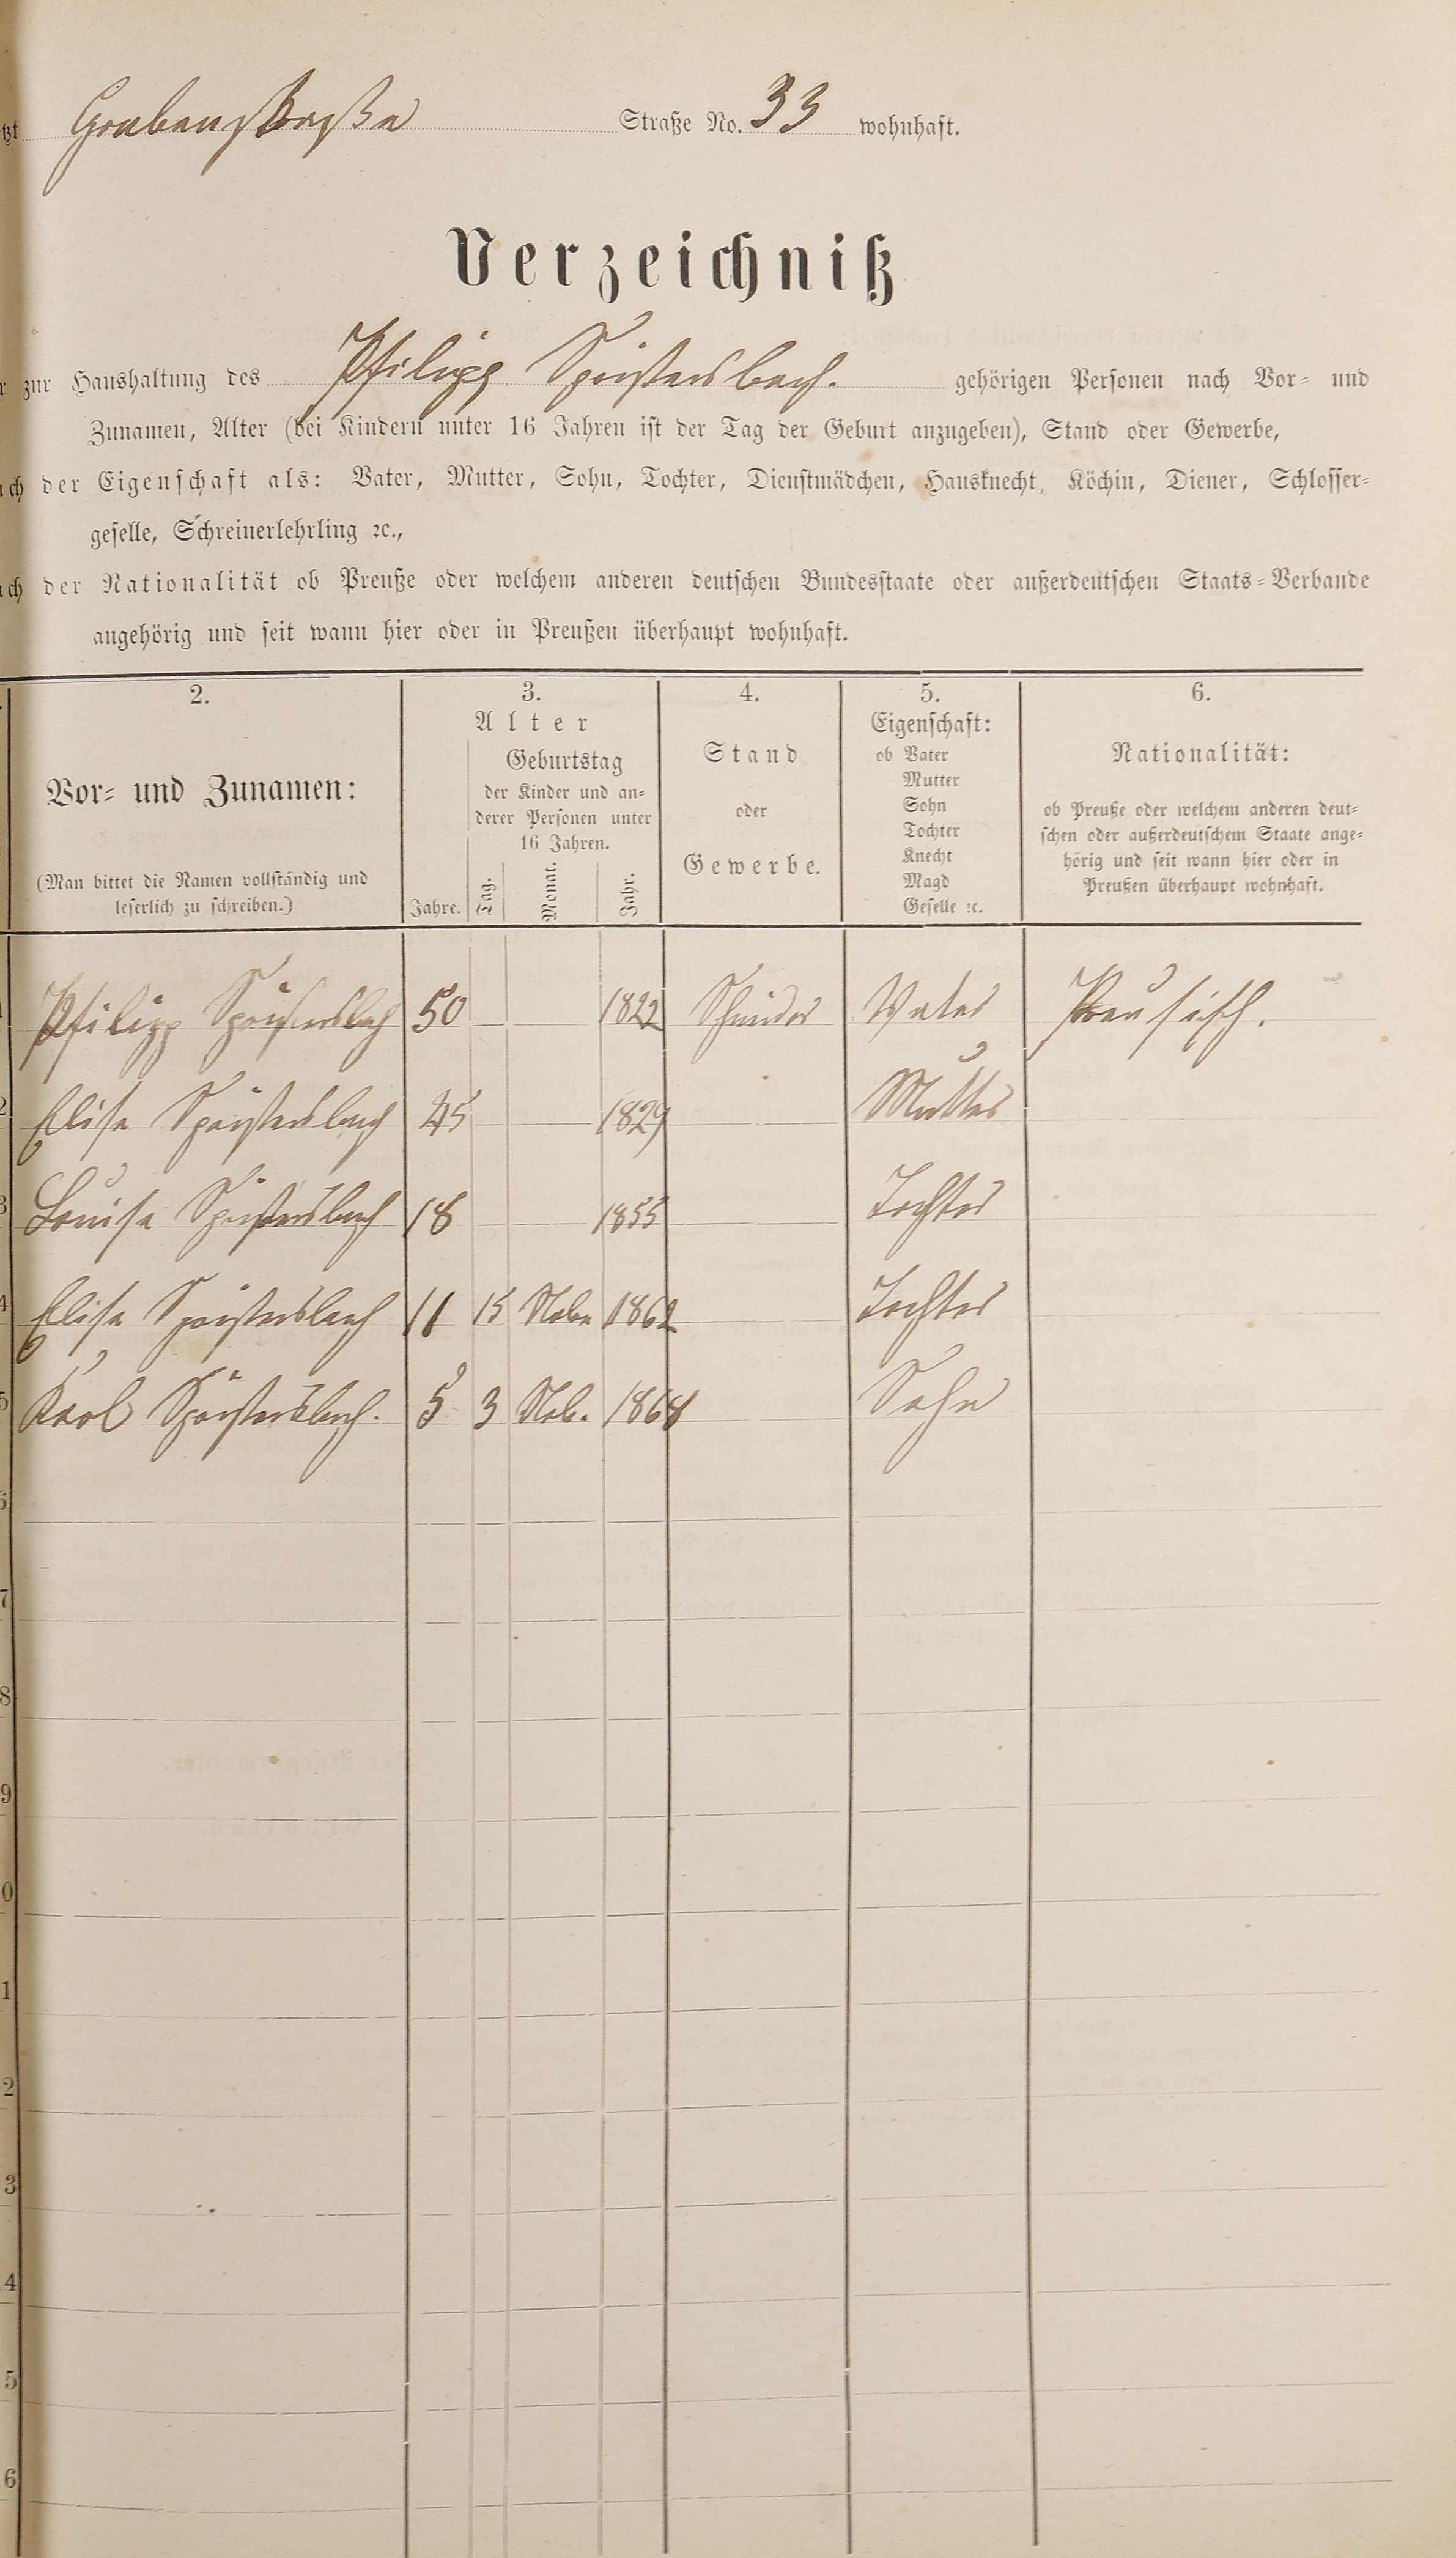 tzt Grabenstraße Straße No. 33 wohnhaft.
Verzeichniß
r zur Haushaltung des Philipp Spristersbach. gehörigen Personen nach Vor- und
Zunamen, Alter (bei Kindern unter 16 Jahren ist der Tag der Geburt anzugeben), Stand oder Gewerbe,
ach der Eigenschaft als: Vater, Mutter, Sohn, Tochter, Dienstmädchen, Hausknecht, Köchin, Diener, Schlosser-
geselle, Schreinerlehrling ꝛc.,
ach der Nationalität ob Preuße oder welchem anderen deutschen Bundesstaate oder außerdeutschen Staats-Verbande
angehörig und seit wann hier oder in Preußen überhaupt wohnhaft.
2. 3. 4. 5. 6.
Vor- und Zunamen:
(Man bittet die Namen vollständig und
leserlich zu schreiben.)
Alter
Geburtstag
der Kinder und an-
derer Personen unter
16 Jahren.
Jahre. Tag. Monat. Jahr.
Stand
oder
Gewerbe.
Eigenschaft:
ob Vater
Mutter
Sohn
Tochter
Knecht
Magd
Geselle ꝛc.
Nationalität:
ob Preuße oder welchem anderen deut-
schen oder außerdeutschem Staate ange-
hörig und seit wann hier oder in
Preußen überhaupt wohnhaft.
1 Philipp Spristersbach 50 1822 Schneider Vater Preusisch.
2 Elise Spristersbach 45 1829 Mutter
3 Louise Spristersbach 18 1855 Tochter
4 Elise Spristersbach 11 15 Nobr 1862 Tochter
5 Karl Spristersbach. 5 3 Nob. 1868 Sohn
6
7
8
9
0
1
2
3
4
5
6